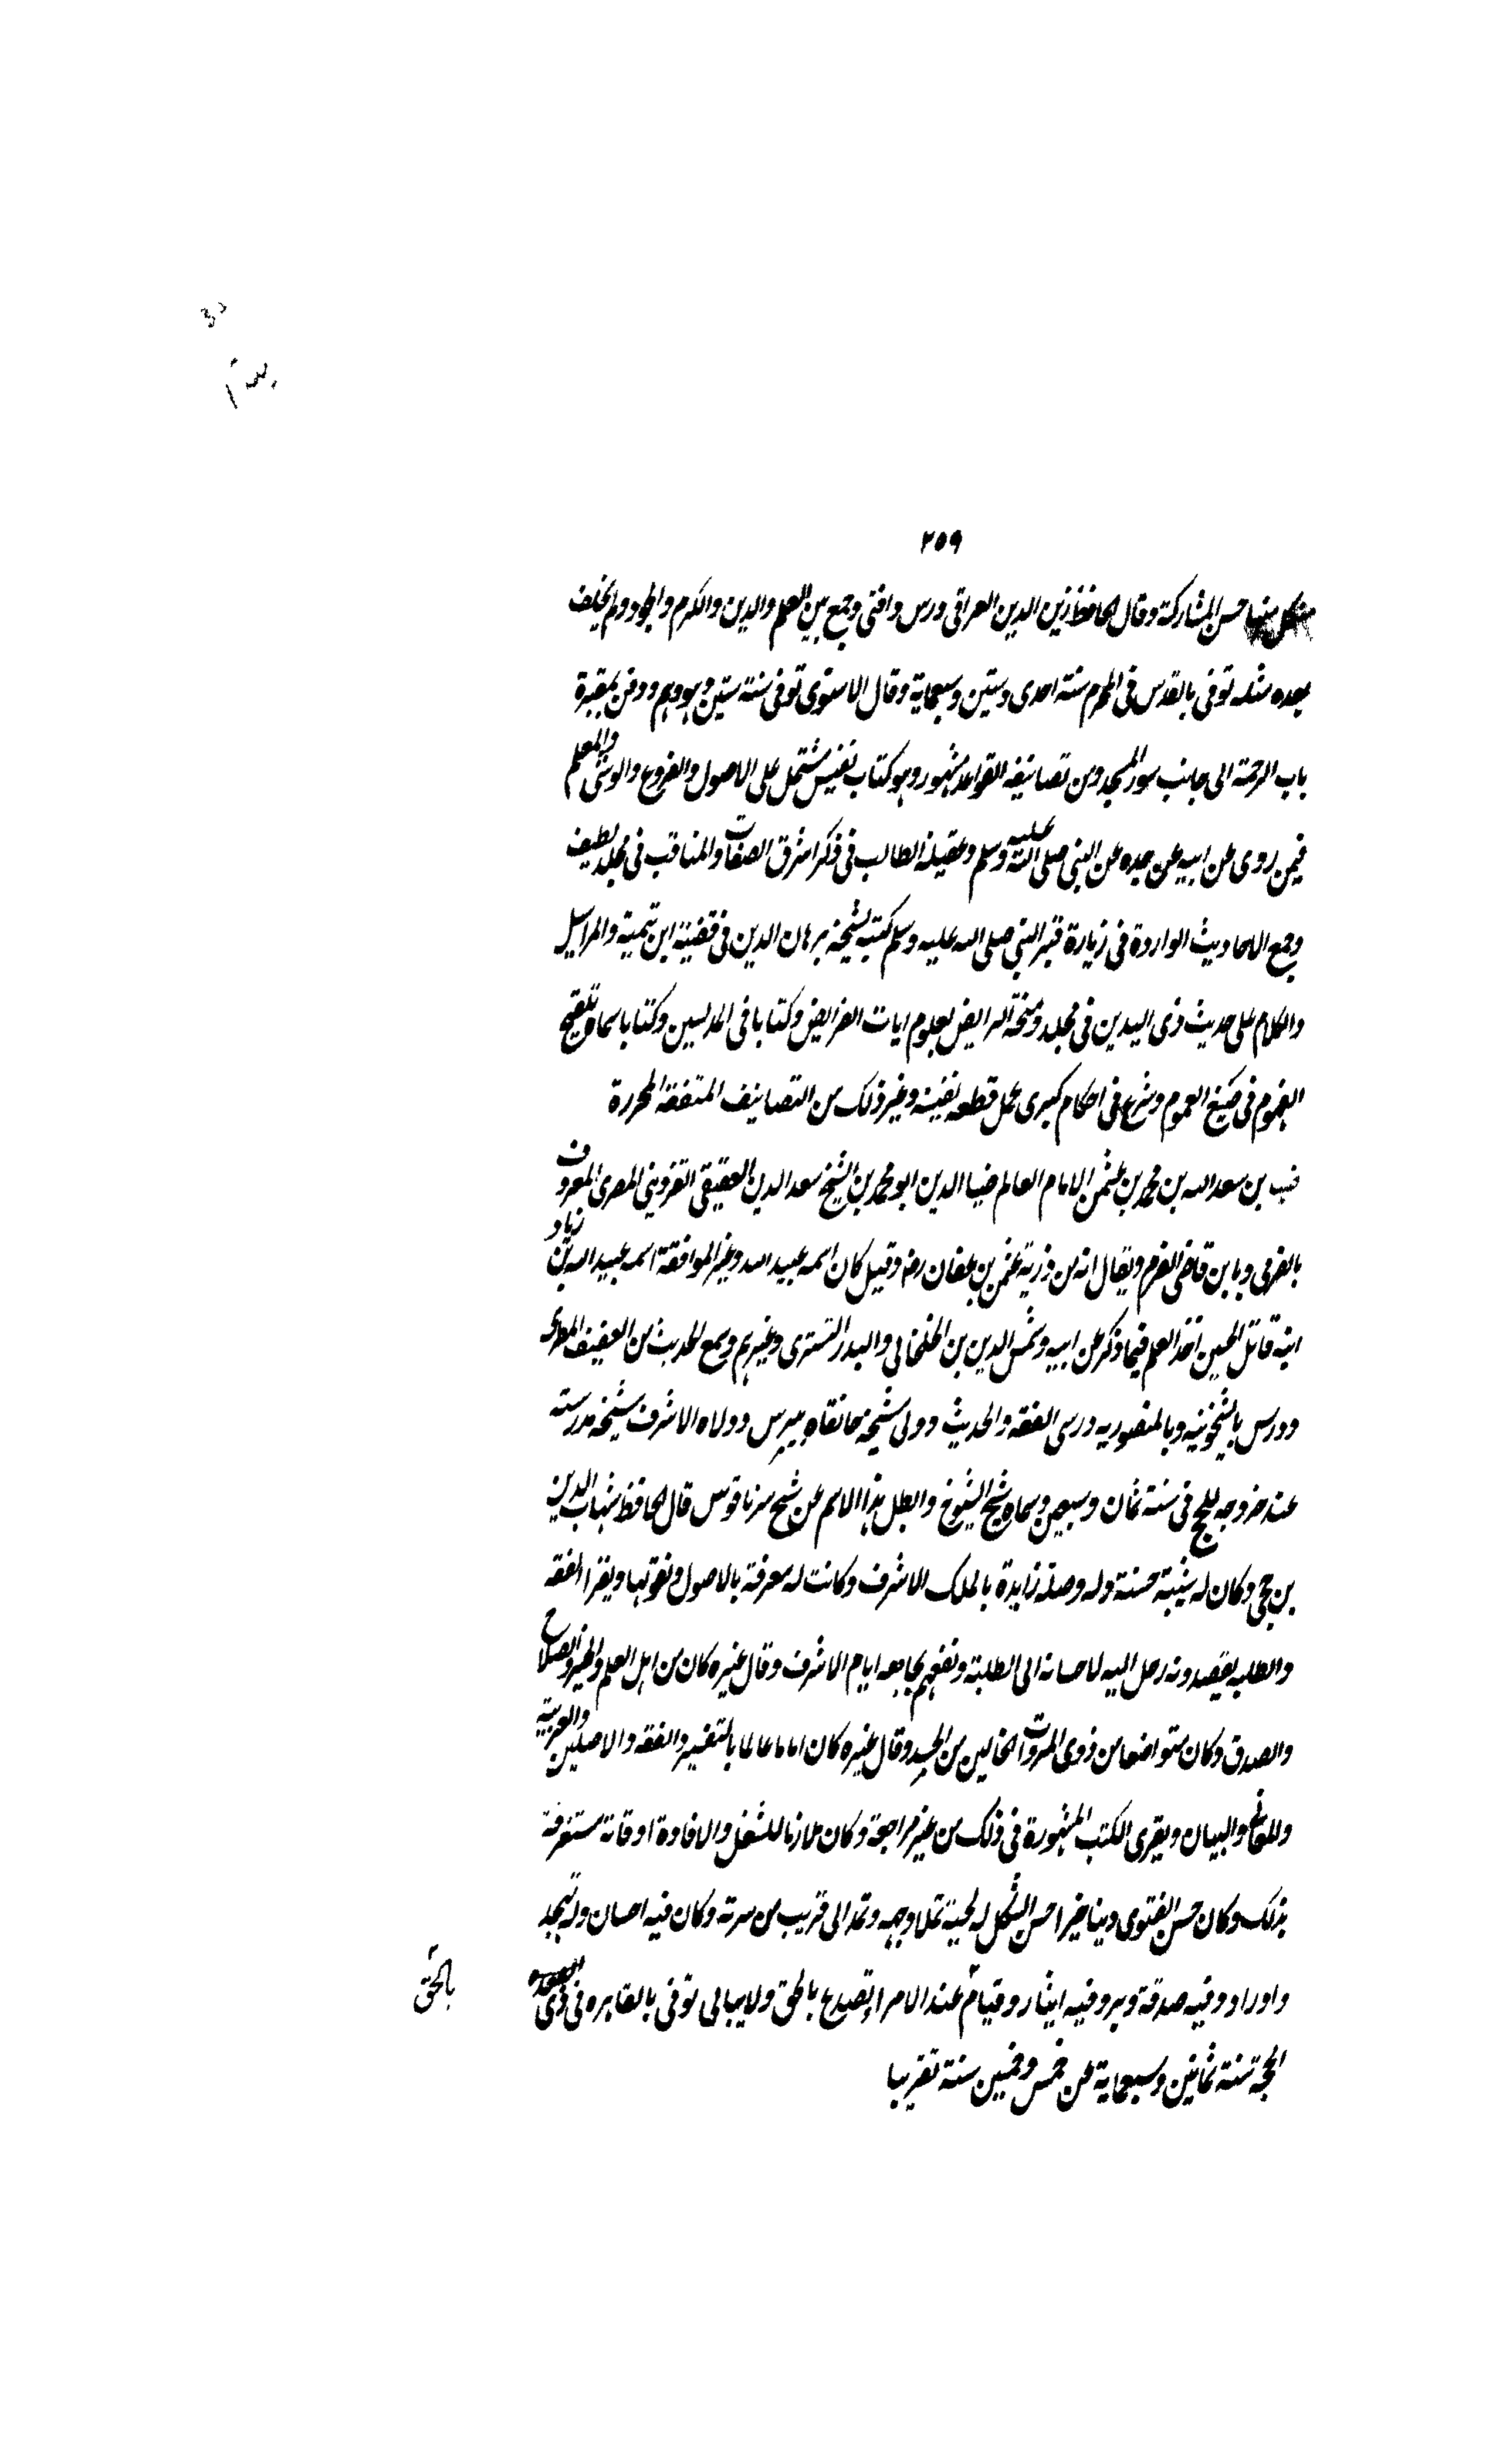 ٢٥٩
بكل منها حسن المشاركة وقال الحافظ زين الدين العراقى درس وافتى وجمع بين العلم والدين والكرم والجود ولم يخلف
بعده مثله توفى بالقدس فى المحرم سنة احدى وستين وسبعماية وقال الاسنوى توفى سنة ستين وهو وهم ودفن بمقبرة
باب الرحمة الى جانب سور المسجد ومن تصانيفه القواعد مشهور وهو كتاب نفيس مشتمل على الاصول والفروع والوشى والمعلم
فيمن روى عن ابيه عن جده عن النبى صلى الله عليه وسلم وعقيلة الطالب فى ذكر اشرق الصفات والمناقب فى مجلد لطيف
وجمع الاحاديث الواردة فى زيارة قبر النبى صلى الله عليه وسلم كتبه لشيخه برهان الدين فى قضية ابن تيمية والمراسيل
والكلام على حديث ذى اليدين فى مجلد ومنحة الرايض لعلوم ايات الفرايض وكتابا فى المدلسين وكتابا سماه تلقيح
الفهوم فى صيغ العموم وشرع فى احكام كبرى عمل قطعه نفيسه وغير ذلك من التصانيف المتفقة المحررة
بن سعد الله بن محمد بن عثمن الامام العالم ضيا الدين ابو محمد بن الشيخ سعد الدين العفيفى القزوينى المصرى المعروف
بالقرمى وبابن قاضى القرم ويقال انه من ذرية عثمن بن عفان رضـ وقيل كان اسمه عبيد الله وغير لموافقة اسمه عبيد الله بن زياد
ابنه قاتل الحسين اخذ العلم فيما ذكر عن ابيه وشمس الدين بن الخلخالى والبدر التسترى وغيرهم وسمع الحديث من العفيف المطرى
ودرس بالشيخونية وبالمنصوريه درسى الفقه والحديث وولى شيخه خانقاه بيبرس وولاه الاشرف شيخه مدرسته
عند خروجه للحج فى سنة ثمان وسبعين وسماه شيخ الشيوخ وابطل هذا الاسم عن شيخ سرناقوس قال الحافظ شهاب الدين
بن حجى وكان له شيبة حسنة وله وصلة زايدة بالملك الاشرف وكانت له معرفة بالاصول ونقوتها ويقرا الفقه
والطلبه يقصدونه رحل اليه لاحسانه الى الطلبة ونفعهم بجامعه ايام الاشرف وقال غيره كان من اهل العلم والخير والصلاح
والصدق وكان متواضعا من ذوى المروات الخالين من الحسد وقال غيره كان اماما عالما بالتفسير والفقه والاصلين والعربية
وللمعانى والبيان ويقرى الكتب المشهورة فى ذلك من غير مراجعة وكان ملازما للشغل والافادة اوقاته مستغرقة
بذلك وكان حسن الفتوى دينا خيرا حسن الشكل له لحية تملا وجهه وتمد الى قريب من سرته وكان فيه احسان وله تهجد
واوراد وفيه صدقة وبر وفيه ايثار وقيام عند الامرا يصدع بالحق ولا يبالى توفى بالقاهره فى ذى القعده
بالحق
الحجة سنة ثمانين وسبعماية عن خمس وخمسين سنة تقريبا